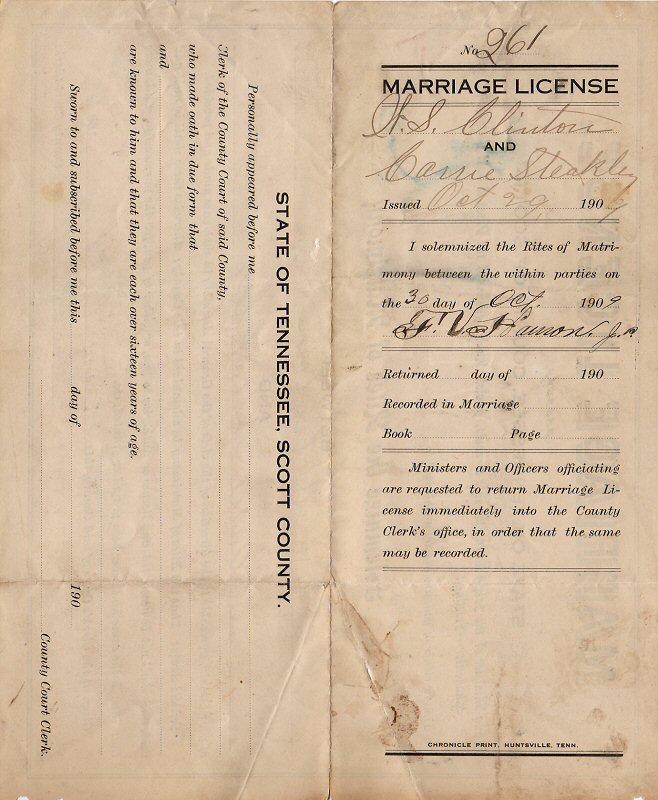 No 261
MARRIAGE LICENSE
W. S. Clinton
AND
Carrie Steakley
Issued Oct 29 1909
I solemnized the Rites of Matri-
mony between the within parties on
the 30 day of Oct. 1909
F. V.
Returned day of 190
Recorded in Marriage
Book Page
Ministers and Officers officiating
are requested to return Marriage Li-
cense immediately into the County
Clerk's office, in order that the same
may be recorded.
CHRONICLE PRINT, HUNTSVILLE, TENN.
STATE OF TENNESSEE, SCOTT COUNTY.
Personally appeared before me
Clerk of the County Court of said County,
who made oath in due form that
and
are known to him and that they are each over sixteen years of age.
Sworn to and subscribed before me this day of 190
County Court Clerk.